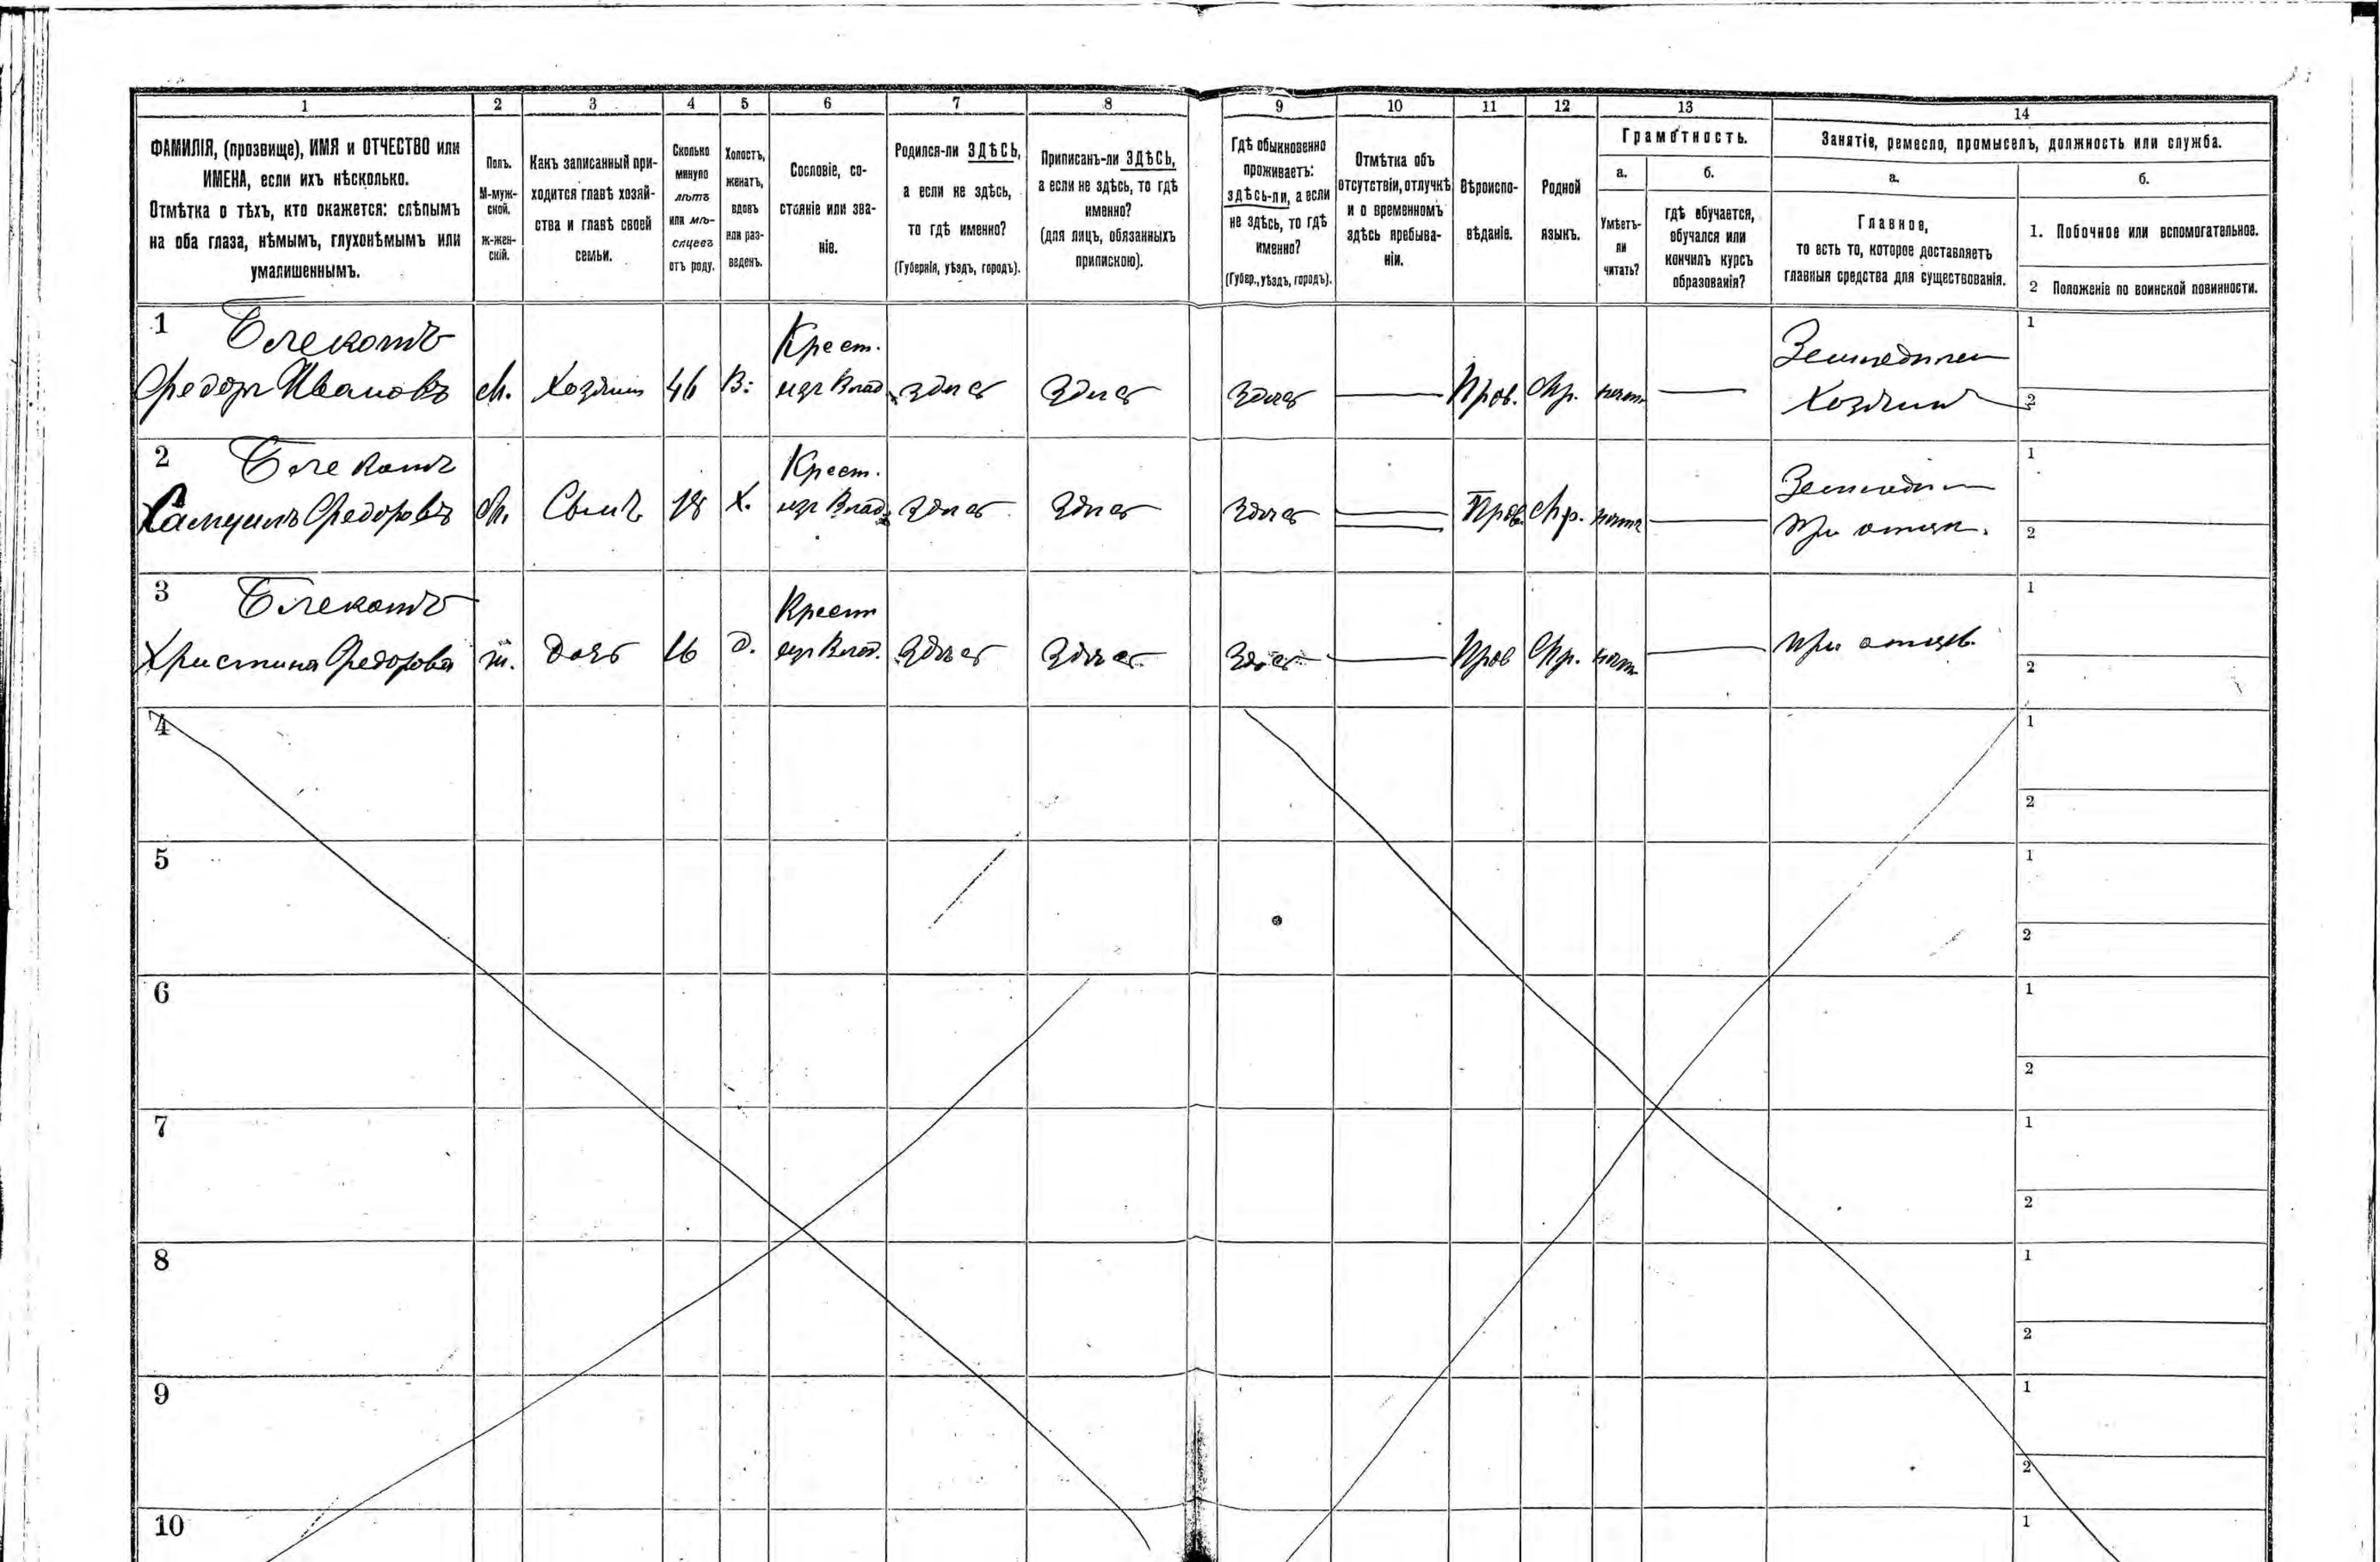 1 2 3 4 5 6 7 8 9 10 11 12 13 14
ФАМИЛІЯ, (прозвище), ИМЯ и ОТЧЕСТВО или
ИМЕНА, если ихъ нѣсколько.
Отмѣтка о тѣхъ, кто окажется: слѣпымъ
на оба глаза, нѣмымъ, глухонѣмымъ или
умалишеннымъ.
Полъ.
М-муж-
ской.
ж-жен-
скій.
Какъ записанный при-
ходится главѣ хозяй-
ства и главѣ своей
семьи.
Сколько
минуло
лѣтъ
или мѣ-
сяцевъ
отъ роду.
Холостъ,
женатъ,
вдовъ
или раз-
веденъ.
Сословіе, со-
стояніе или зва-
ніе.
Родился-ли ЗДѢСЬ,
а если не здѣсь,
то гдѣ именно?
(Губернія, уѣздъ, городъ).
Приписанъ-ли ЗДѢСЬ,
а если не здѣсь, то гдѣ
именно?
(для лицъ, обязанныхъ
припискою).
Гдѣ обыкновенно
проживаетъ:
здѣсь-ли, а если
не здѣсь, то гдѣ
именно?
(Губер., уѣздъ, городъ).
Отмѣтка объ
отсутствіи, отлучкѣ
и о временномъ
здѣсь пребыва-
ніи.
Вѣроиспо-
вѣданіе.
Родной
языкъ.
Грамотность.
а.
Умѣетъ-
ли
читать?
б.
гдѣ обучается,
обучался или
кончилъ курсъ
образованія?
Занятіе, ремесло, промыселъ, должность или служба.
а.
Главное,
то есть то, которое доставляетъ
главныя средства для существованія.
б.
1. Побочное или вспомогательное.
2 Положеніе по воинской повинности.
1 Блекотъ Крест. 1
Федоръ Ивановъ М. Хозяин 46 В. изъ Влад. здѣсь здѣсь здѣсь — Прав. Мр. нѣтъ — Хозяинъ 2
2 Блекотъ Крест. 1
Самуилъ Федоровъ М. Сынъ 18 Х. изъ Влад. здѣсь здѣсь здѣсь — Прав. Мр. нѣтъ — при отцѣ. 2
3 Блекотъ Крест 1
Христина Федорова ж. дочь 16 д. изъ Влад. здѣсь здѣсь здѣсь — Прав Мр. нѣт — при отцѣ. 2
4 1
2
5 1
2
6 1
2
7 1
2
8 1
2
9 1
2
10 1